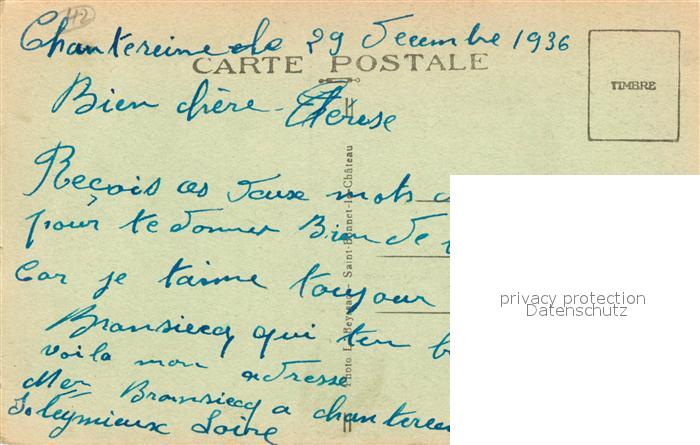 42
Chantereine le 29 Decembre 1936
CARTE POSTALE
TIMBRE
Bien chère Therese
Reçois ces deux mots
pour te donner Bien de
Car je taime toujour
Bransiecq qui ten
voila mon adresse
Bransiecq a chanterei
Loire
Photo L. Beyssac - Saint-Bonnet-le-Château
privacy protection
Datenschutz